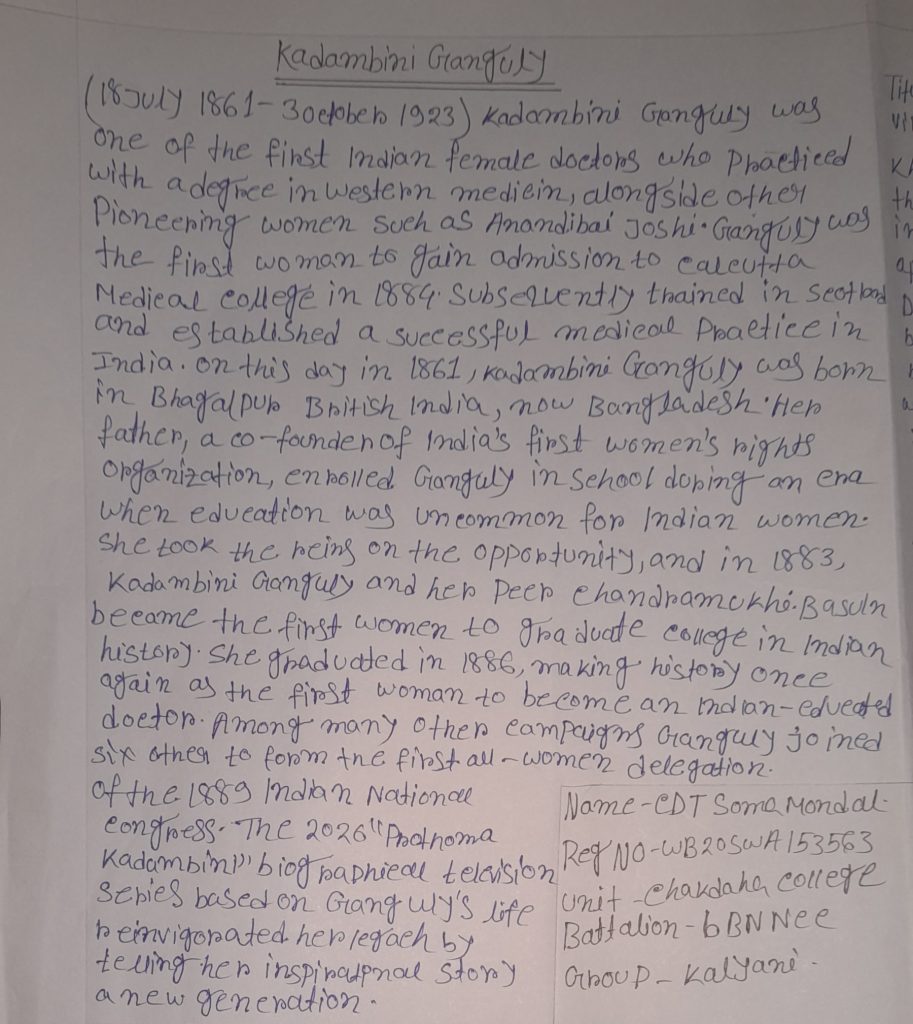 Kadambini Ganguly
(18 July 1861 - 3 october 1923) Kadambini Ganguly was
one of the first Indian female doctors who Practiced
with a degree in western medicin, alongside other
Pioneering women such as Anandibai Joshi. Ganguly was
the first woman to gain admission to calcutta
Medical college in 1884. Subsequently trained in Scotland
and established a successful medical Practice in
India. on this day in 1861, Kadambini Ganguly was born
in Bhagalpur British India, now Bangladesh. Her
father, a co-founder of India's first women's rights
Organization, enrolled Ganguly in School during an era
when education was uncommon for Indian women.
She took the reins on the opportunity, and in 1883,
Kadambini Ganguly and her Peer Chandramukhi. Basuln
became the first women to graduate college in Indian
history. She graduated in 1886, making history once
again as the first woman to become an Indian-educated
doctor. Among many other campaigns Ganguly joined
six other to form the first all-women delegation.
of the 1889 Indian National
congress. The 2026 "Prothoma
Kadambini" biographical television
series based on Ganguly's life
reinvigorated her legach by
telling her inspiratpnal Story
a new generation.
Name - CDT Soma Mondal.
Reg NO - WB20SWA153563
Unit - Chakdaha College
Battalion - 6BN Ncc
Group - Kalyani.